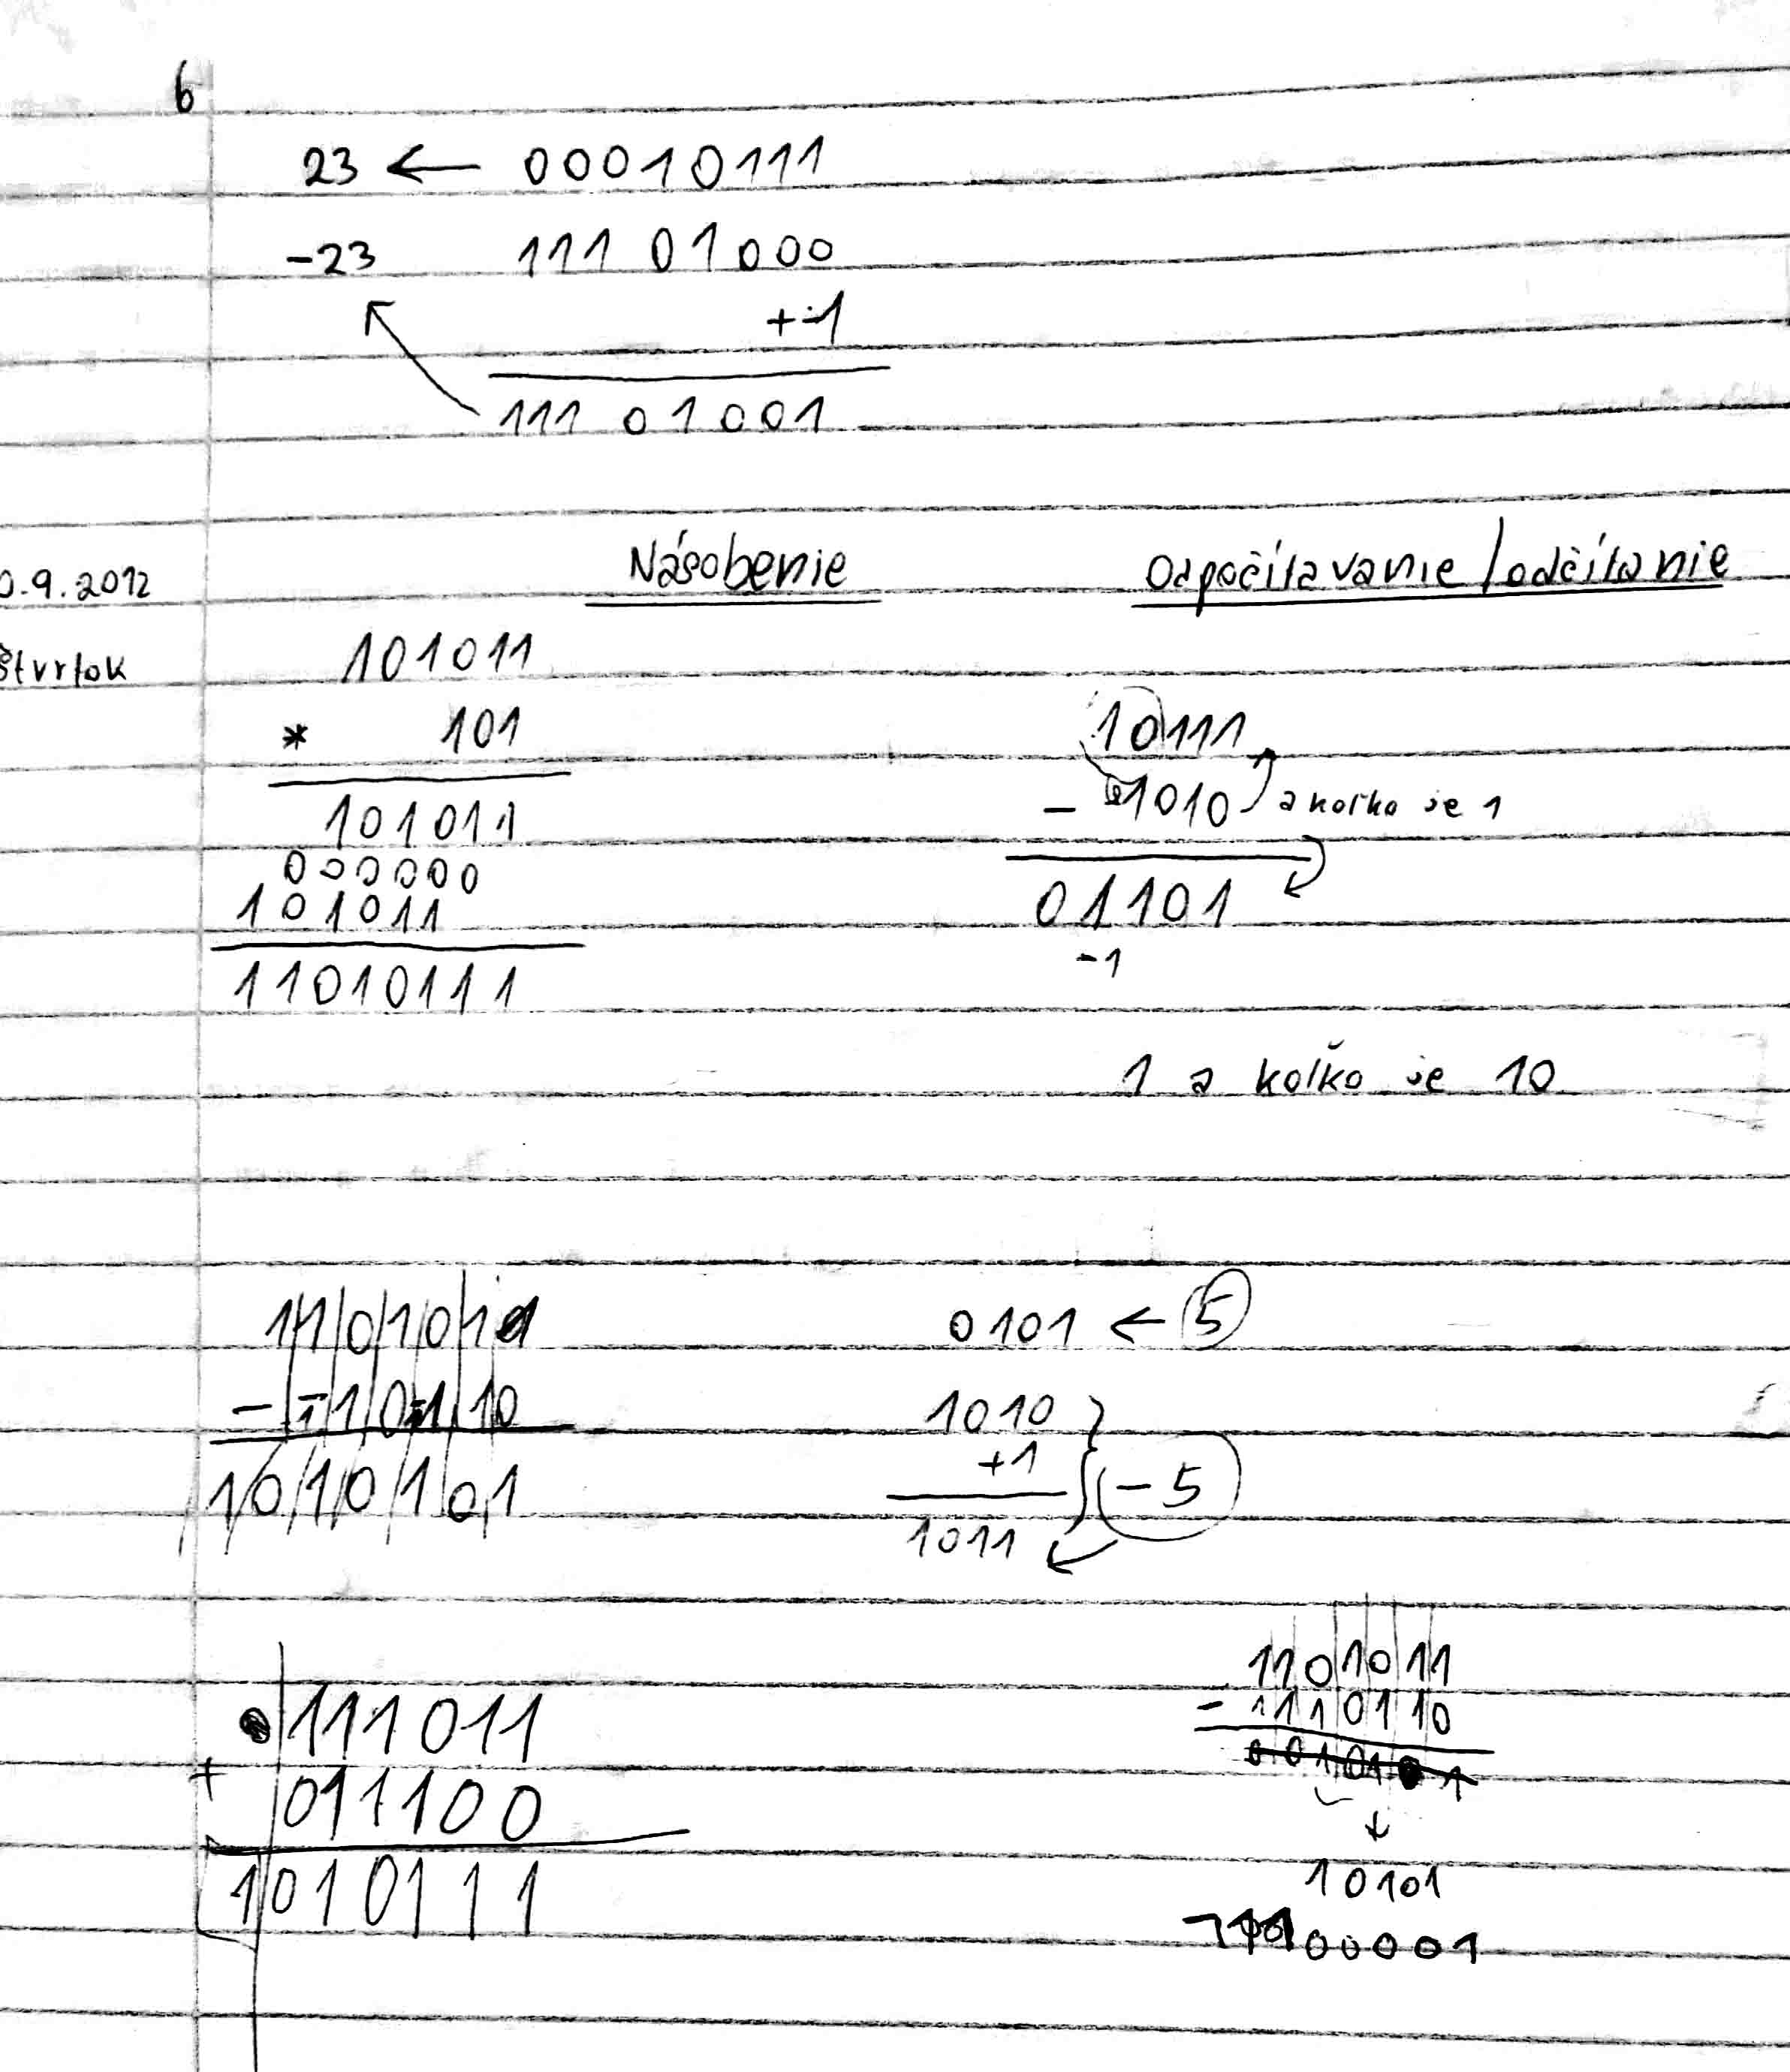 6
23 ← 00010111
-23 111 01000
+1
111 01001
0.9.2012 Násobenie Odpočítavanie/odčítanie
štvrtok
101011
* 101
101011
000000
101011
11010111
10111
- 1010 a koľko je 1
01101
-1
1 a koľko je 10
1101011
- 110110
1010101
0101 ← 5
1010
+1
-5
1011
111011
+ 011100
1010111
1101011
- 1110110
10101